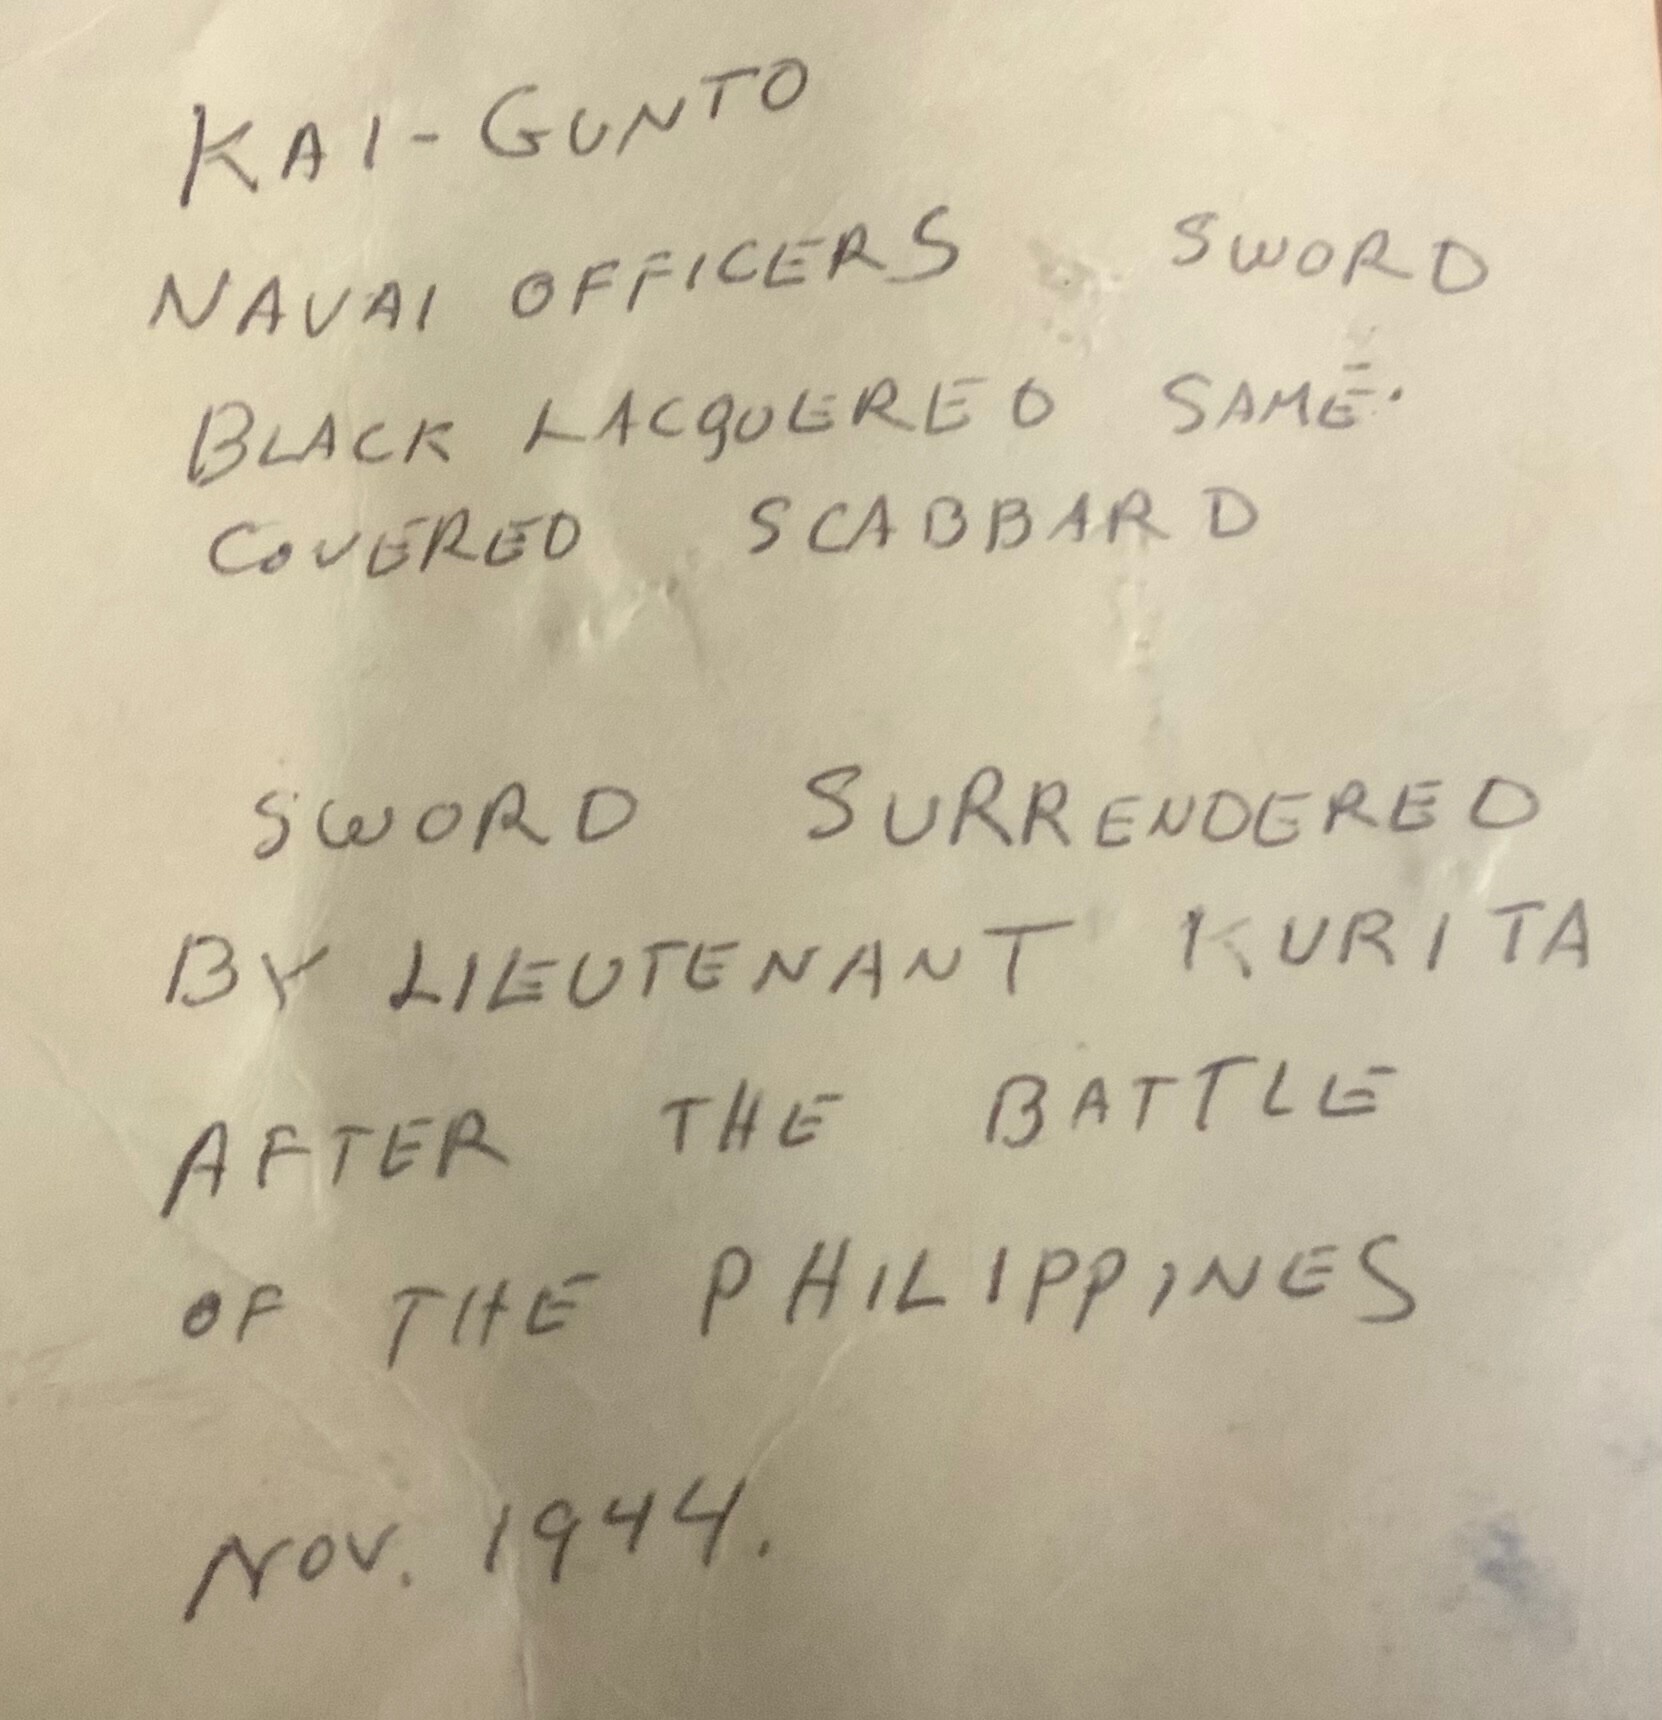 KAI-GUNTO
NAVAL OFFICERS SWORD
BLACK LACQUERED SAME.
COVERED SCABBARD
SWORD SURRENDERED
BY LIEUTENANT KURITA
AFTER THE BATTLE
OF THE PHILIPPINES
NOV. 1944.